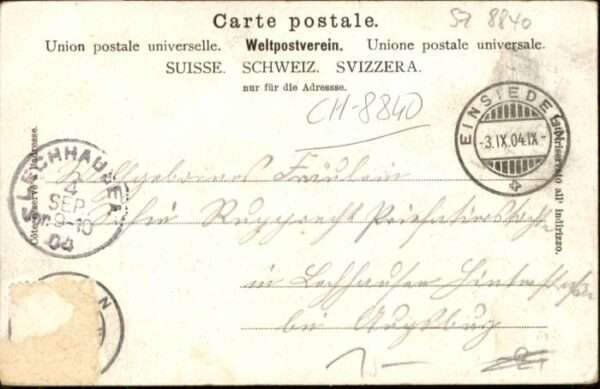 Carte postale.
SZ 8840
Union postale universelle. Weltpostverein. Unione postale universale.
SUISSE. SCHWEIZ. SVIZZERA.
nur für die Adresse.
CH-8840
EINSIEDELN
-3.IX.04.IX-
LECHHAUSEN
4
SEP
9-10
04
Côté réservé à l'adresse.
Lato riservato all' indirizzo.
Wohlgebornes Fräulein
Rupprecht
in Lechhausen
bei Augsburg